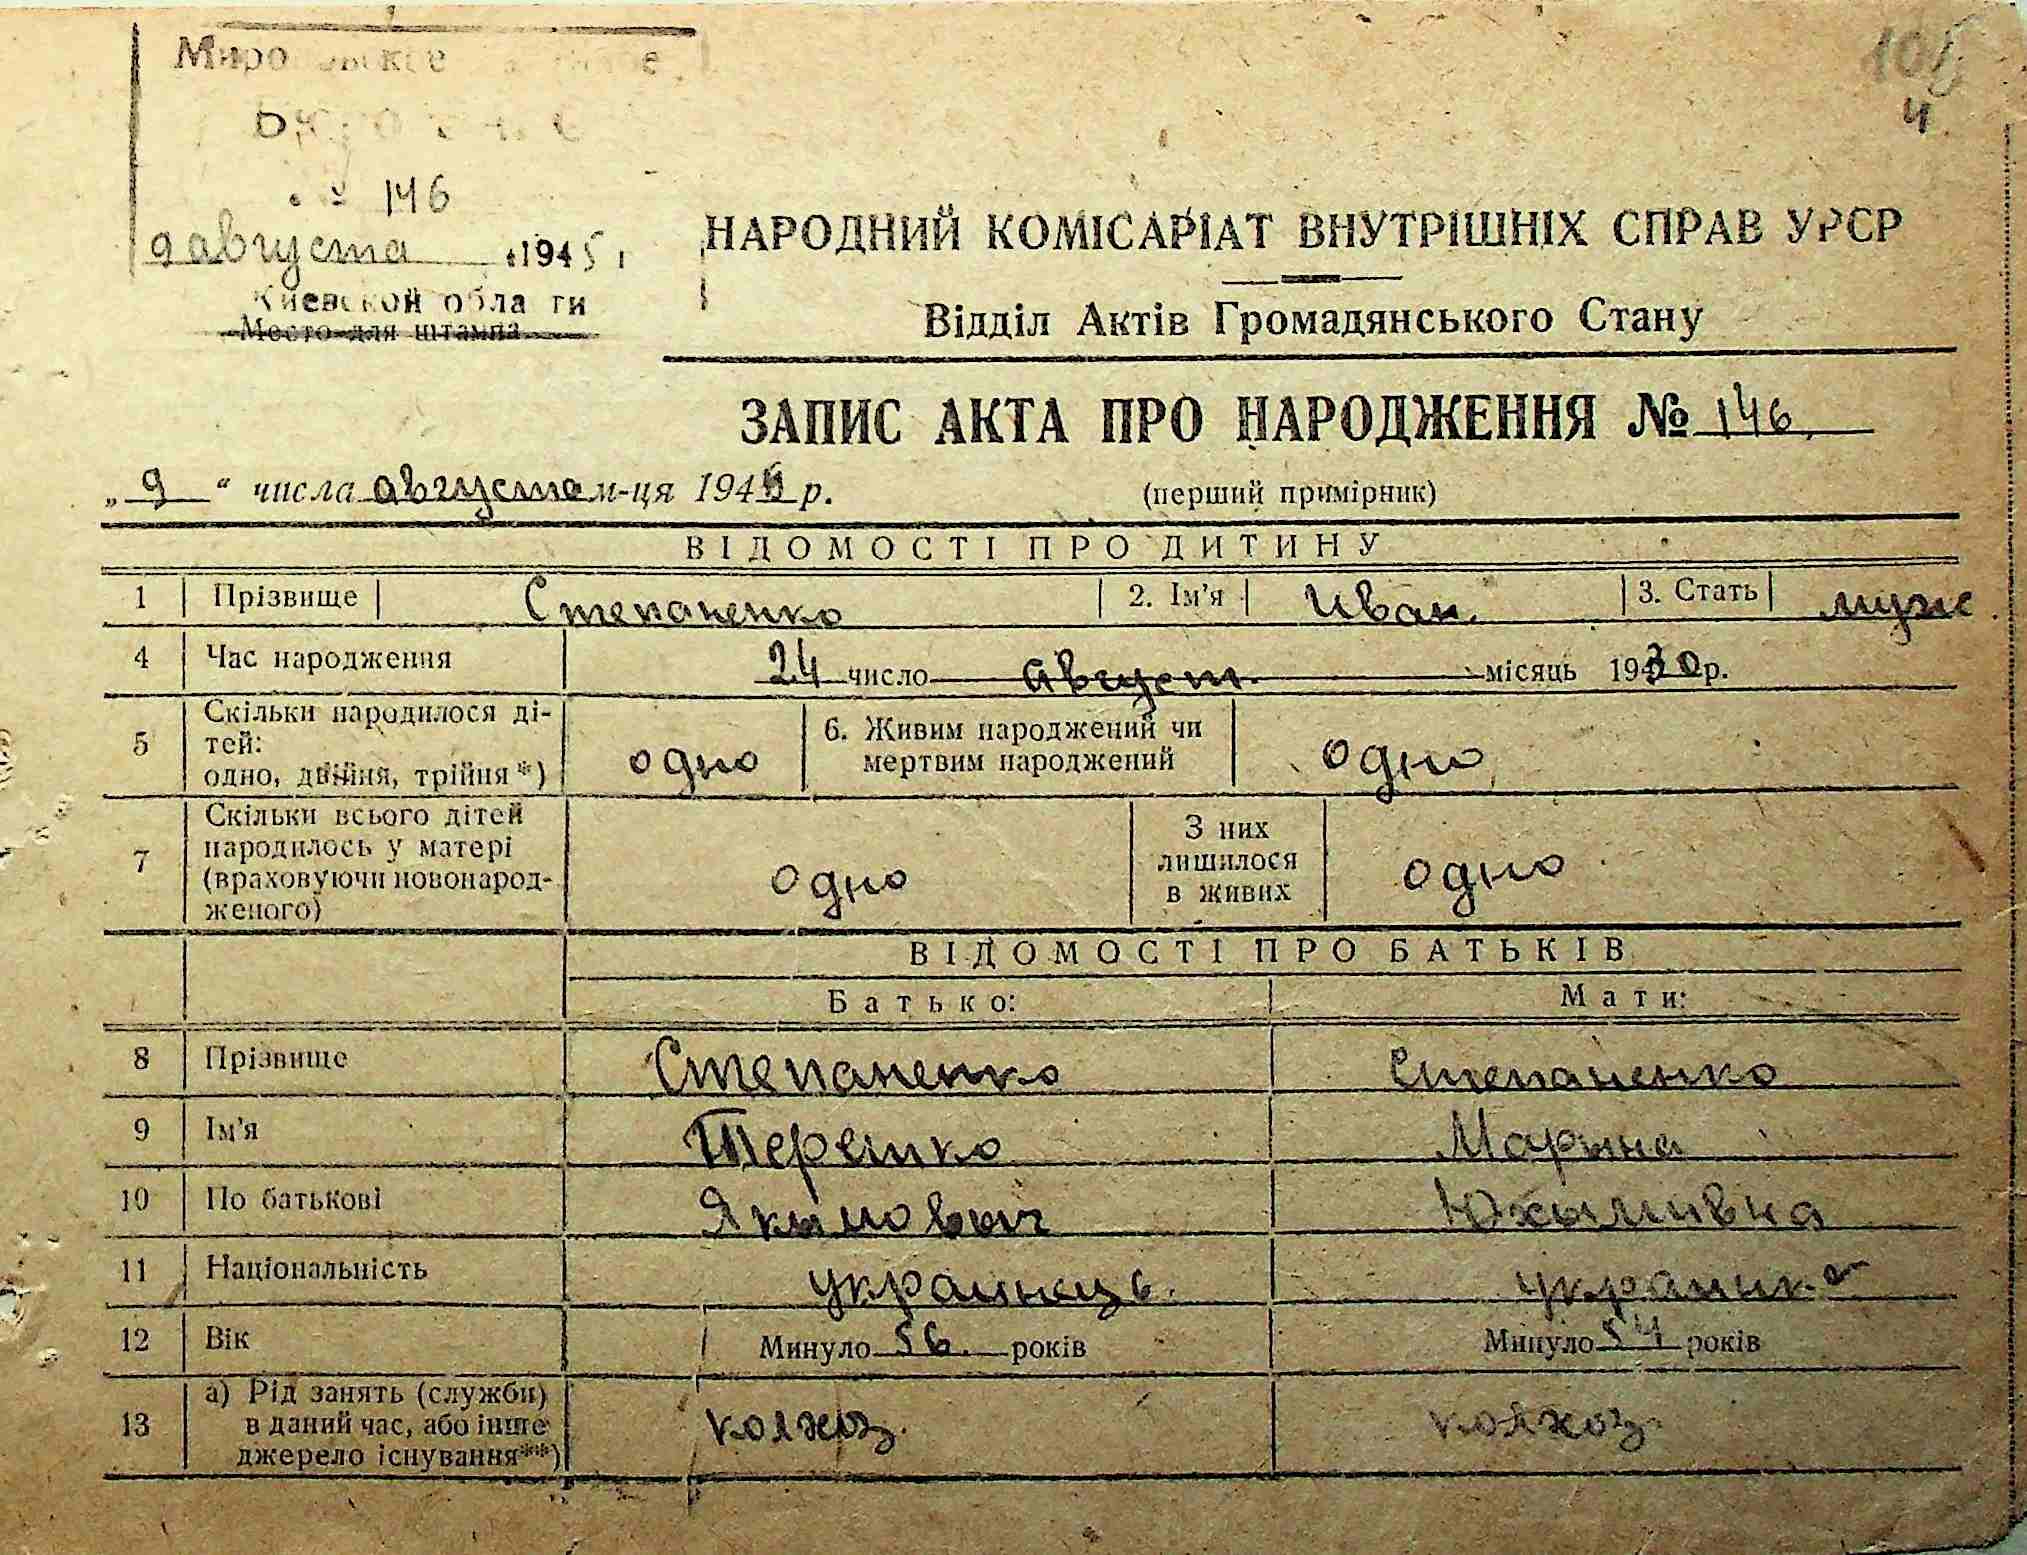 105
4
№ 146
9 августа 1945 г
Киевской области
Место для штампа
НАРОДНИЙ КОМІСАРІАТ ВНУТРІШНІХ СПРАВ УРСР
Відділ Актів Громадянського Стану
ЗАПИС АКТА ПРО НАРОДЖЕННЯ № 146.
„ 9 “ числа августа м-ця 1945 р. (перший примірник)
ВІДОМОСТІ ПРО ДИТИНУ
1 Прізвище Степаненко 2. Ім'я Иван. 3. Стать муж.
4 Час народження 24 число август. місяць 1930 р.
5 Скільки народилося ді-
тей:
одно, двійня, трійня*) одно 6. Живим народжений чи
мертвим народжений одно
7 Скільки всього дітей
народилось у матері
(враховуючи новонарод-
женого) одно З них
лишилося
в живих одно
ВІДОМОСТІ ПРО БАТЬКІВ
Батько: Мати:
8 Прізвище Степаненко Степаненко
9 Ім'я Терешко Марына
10 По батькові Якымовыч Юхымивна
11 Національність украинець. украинка
12 Вік Минуло 56. років Минуло 54 років
13 а) Рід занять (служби)
в даний час, або інше
джерело існування**) колхоз. колхоз.